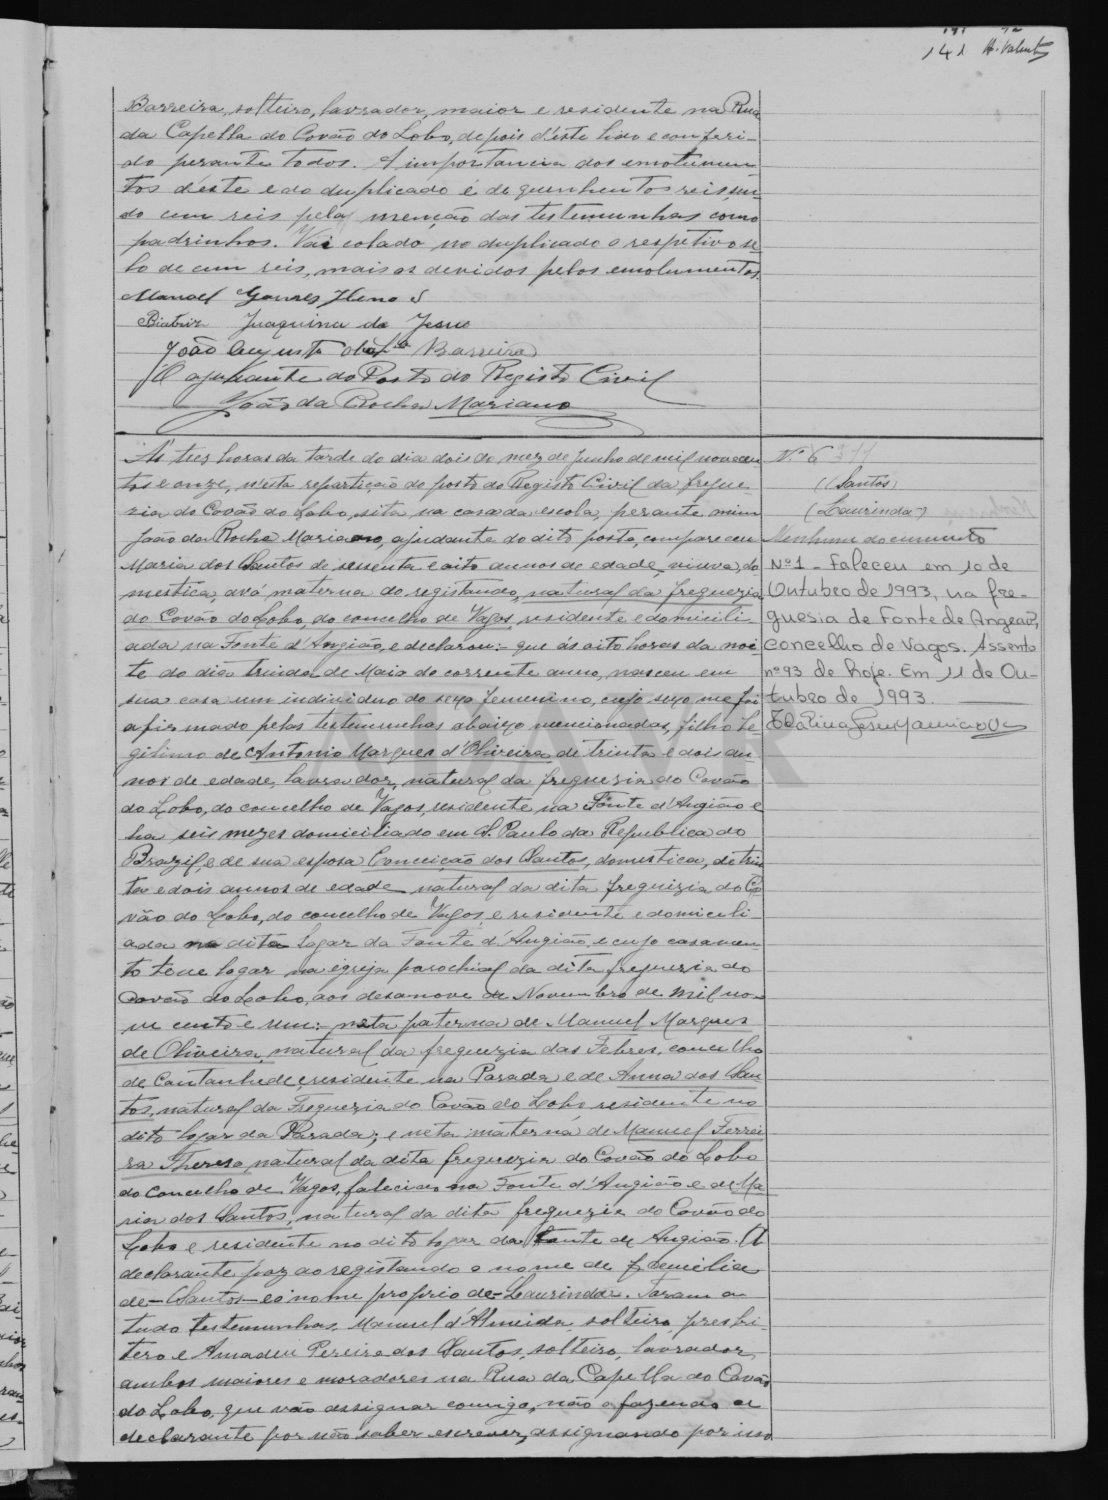 141 A. Valente
Barreira, solteiro, lavrador, maior e residente na Rua
da Capella do Covão do Lobo, depois d'este lido e conferi-
do perante todos. A importancia dos emolumen
tos d'este e do duplicado é de quenhentos reis, sen-
do cem reis pela menção das testemunhas como
padrinhos. Vai colado no duplicado o respetivo se
lo de cem reis, mais os devidos pelos emolumentos.
Manoel Gomes
Biatriz Juaquina de Jesus
João Augusto Barreira
O ajudante do Posto do Registo Civil
João da Rocha Mariano
Ás tres horas da tarde do dia dois do mez de Junho de mil novecen
tos e onze, n'esta repartição do posto do Registo Civil da fregue-
zia do Covão do Lobo, sita na casa da escola, perante mim
João da Rocha Mariano, ajudante do dito posto, compareceu
Maria dos Santos de sessenta e oito annos de edade, viuva, do
mestica, avó materna do registando, natural da freguezia
do Covão do Lobo, do concelho de Vagos, residente e domicili-
ada na Fonte d'Angião, e declarou:- que ás oito horas da noi
te do dia trinta de Maio do corrente anno, nasceu em
sua casa um individuo do sexo femenino, cujo sexo me foi
afirmado pelas testemunhas abaixo mencionadas, filho le
gitimo de Antonio Marques d'Oliveira de trinta e dois an-
nos de edade, lavrador, natural da freguezia do Covão
do Lobo, do concelho de Vagos, residente na Fonte d'Angião e
ha seis mezes domiciliado em S. Paulo da Republica do
Brazil, e de sua esposa Conceição dos Santos, domestica, de trin
ta e dois annos de edade natural da dita freguizia do Co
vão do Lobo, do concelho de Vagos, e residente e domicili-
ada no dito logar da Fonte d'Angião, e cujo casamen
to teve logar na egreja parochial da dita freguezia do
Covão do Lobo, aos desanove de Novembro de mil no-
ve cento e um: neta paterna de Manuel Marques
de Oliveira, natural da freguezia das Febres, concelho
de Cantanhede, residente na Parada e de Anna dos San
tos, natural da Freguezia do Covão do Lobo residente no
dito logar da Parada; e neta materna de Manuel Ferrei
ra Thereso, natural da dita freguezia do Covão do Lobo
do concelho de Vagos, falecido na Fonte d'Angião e de Ma
ria dos Santos, natural da dita freguezia do Covão do
Lobo e residente no dito logar da Fonte de Angião. A
declarante poz ao registando o nome de familia
de-Santos-e o nome proprio de-Laurinda. Foram a
tudo testemunhas, Manuel d'Almeida, solteiro, presbi-
tero e Amadeu Pereira dos Santos, solteiro, lavrador,
ambos maiores e moradores na Rua da Capella do Covão
do Lobo, que vão assignar comigo, não o fazendo a
declarante por não saber escrever, assignando por isso
N.º 6
(Santos)
(Laurinda)
Nenhum documento
Nº1 - Faleceu em 10 de
Outubro de 1993, na fre-
guesia de Fonte de Angeão,
concelho de Vagos. Assento
nº 93 de hoje. Em 11 de Ou-
tubro de 1993.